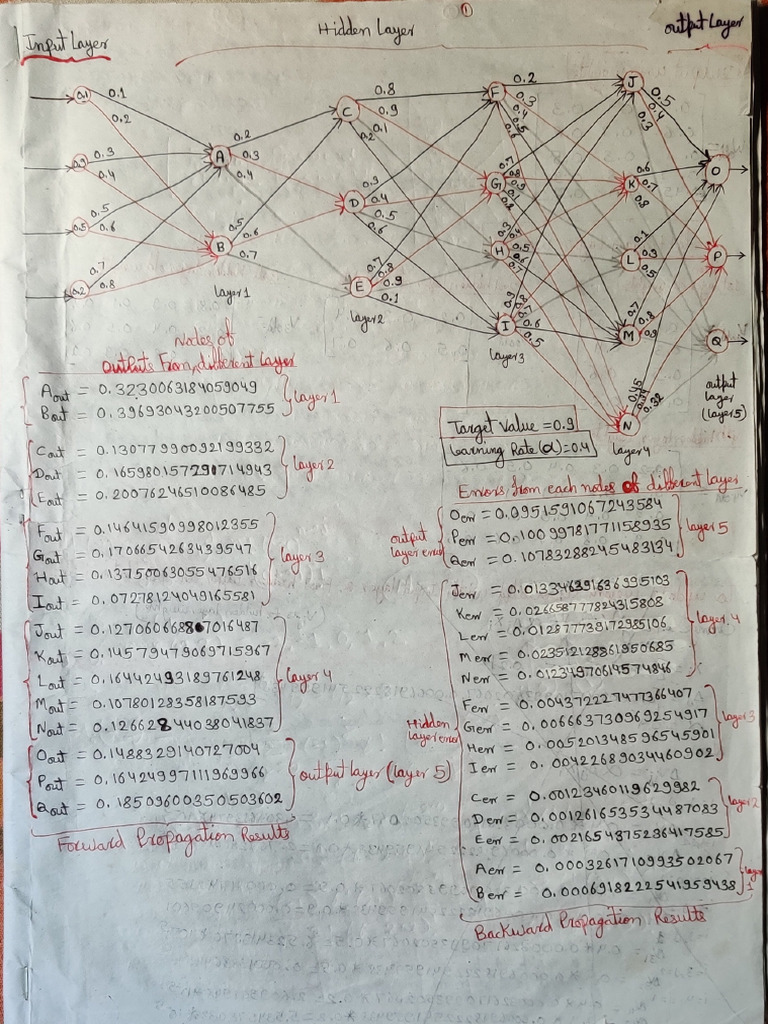 1
Input Layer
Hidden Layer
output Layer
0.1
0.1
0.2
0.3
0.4
0.5
0.5
0.6
0.2
0.7
0.8
A
0.2
0.3
0.4
B
0.5
0.6
0.7
layer1
C
0.8
0.9
0.1
0.2
D
0.3
0.4
0.5
0.6
E
0.7
0.8
0.9
0.1
layer2
F
0.2
0.3
0.4
0.5
0.6
G
0.7
0.8
0.9
0.1
H
0.3
0.5
0.6
0.7
I
0.9
0.8
0.7
0.6
0.5
layer3
J
0.5
0.4
0.3
K
0.6
0.7
0.8
L
0.1
0.3
0.5
M
0.7
0.8
0.9
N
0.45
0.32
layer4
O
P
Q
output
layer
(layer5)
Nodes of
outputs From different layer
Aout = 0.3230063184059049
Bout = 0.39693043200507755
layer1
Cout = 0.13077990092199332
Dout = 0.165980157290714943
Eout = 0.20076246510086485
layer2
Fout = 0.14641590998012355
Gout = 0.1706654263439547
Hout = 0.13750063055476516
Iout = 0.07278124049165581
layer3
Jout = 0.12706066887016487
Kout = 0.14579479069715967
Lout = 0.16442493189761248
Mout = 0.10780128358187593
Nout = 0.12662844038041837
layer4
Oout = 0.1488329140727004
Pout = 0.16424997111969966
Qout = 0.18509600350503602
output layer (layer 5)
Forward Propagation Results
Target value = 0.9
Learning Rate(α) = 0.4
Errors from each nodes of different layer
output
layer error
Oerr = 0.0951591067243584
Perr = 0.10099781771158935
Qerr = 0.10783288245483134
layer5
Hidden
layer error
Jerr = 0.013346391636995103
Kerr = 0.02665877782431580​8
Lerr = 0.012877739172985106
Merr = 0.023512128361950685
Nerr = 0.01234970614574846
layer4
Ferr = 0.004372227477366407
Gerr = 0.006663730969254917
Herr = 0.005201348596545901
Ierr = 0.004226890344609​02
layer3
Cerr = 0.00123460119629982
Derr = 0.001261653534487083
Eerr = 0.002165487523641​7585
layer2
Aerr = 0.00032617109935020​67
Berr = 0.0006918222541959438
layer 1
Backward Propagation Results